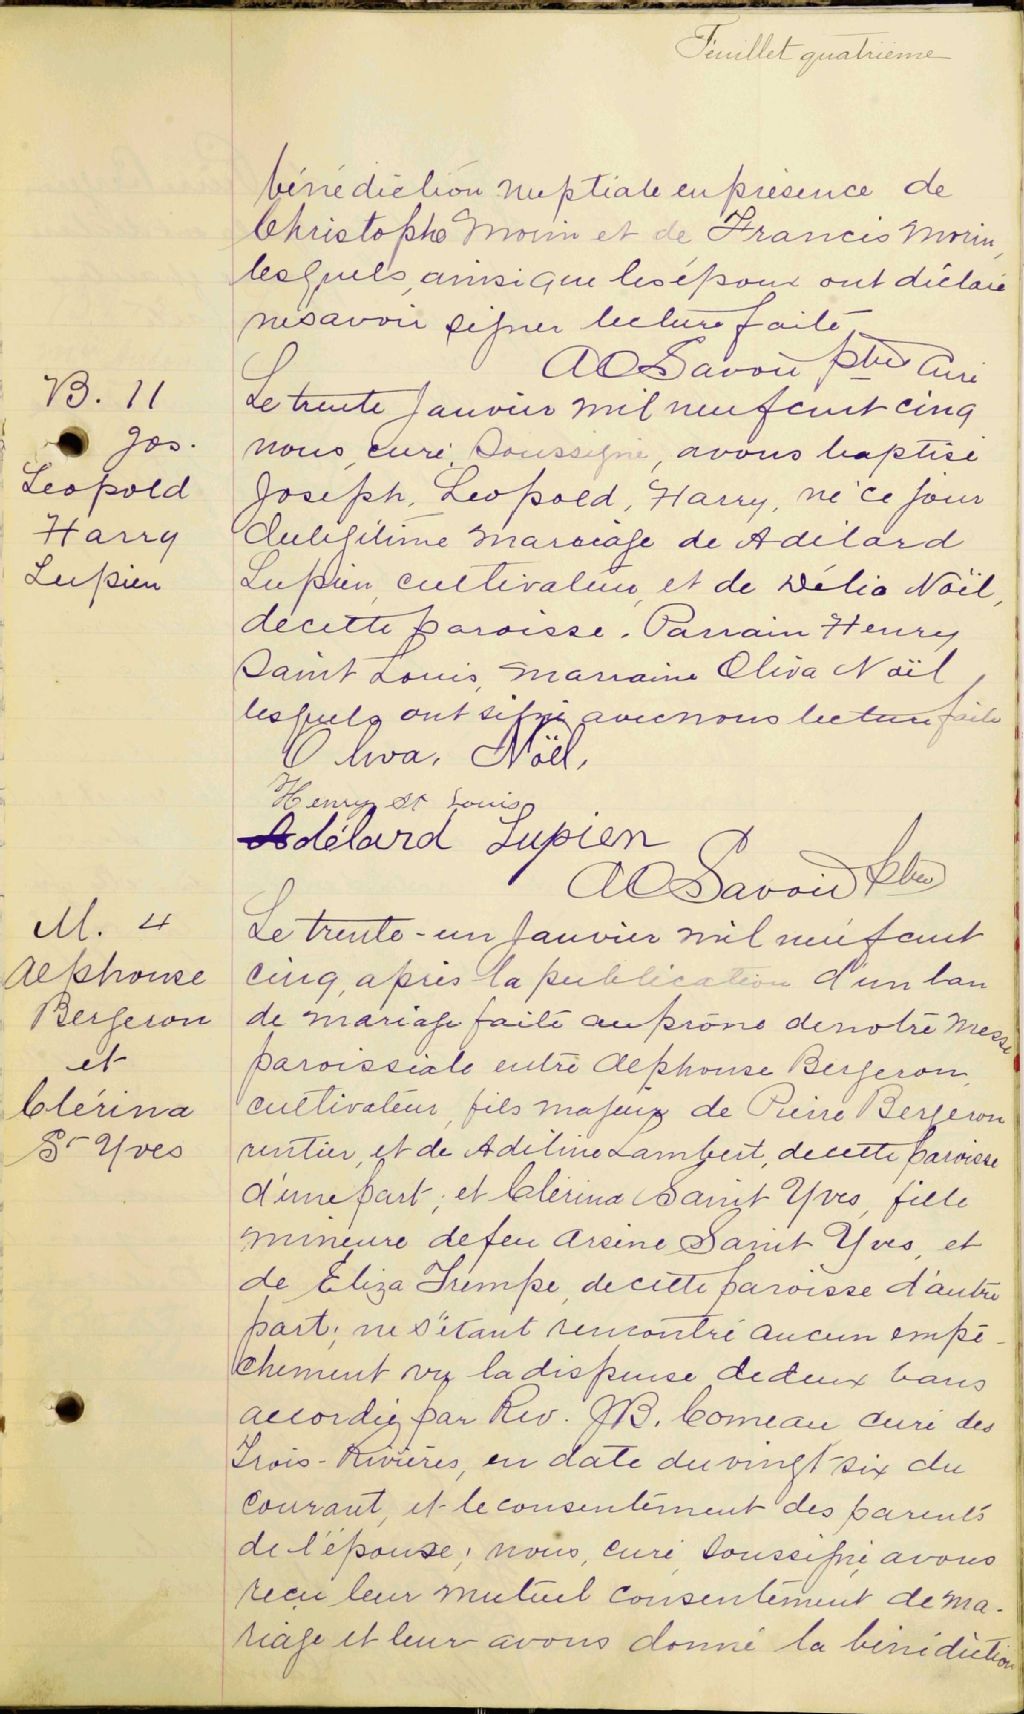 Feuillet quatrième
bénédiction nuptiale en présence de
Christophe Morin et de Francis Morin,
lesquels, ainsi que les époux ont déclaré
ne savoir signer lecture faite
AO Savoie ptre Curé
B. 11
Jos.
Leopold
Harry
Lupien
Le trente Janvier mil neuf cent cinq
nous, curé, soussigné, avons baptisé
Joseph, Leopold, Harry, né ce jour
du légitime mariage de Adélard
Lupien, cultivateur, et de Délia Noël,
de cette paroisse. Parrain Henry
Saint Louis, marraine Oliva Noël
lesquels ont signé avec nous lecture faite
Oliva. Noël,
Henry St Louis
Adélard Lupien
AO Savoie Ptre
M. 4
Alphonse
Bergeron
et
Clérina
St Yves
Le trente-un Janvier mil neuf cent
cinq, après la publication d'un ban
de mariage faite au prône de notre Messe
paroissiale entre Alphonse Bergeron,
cultivateur, fils majeur de Pierre Bergeron
rentier, et de Adéline Lambert, de cette paroisse
d'une part; et Clérina Saint Yves, fille
mineure de feu Arsène Saint Yves, et
de Eliza Trempe, de cette paroisse d'autre
part; ne s'étant rencontré aucun empê-
chement vu la dispense de deux bans
accordée par Rev. JB. Comeau curé des
Trois-Rivières, en date du vingt six du
courant, et le consentement des parents
de l'épouse; nous, curé, soussigné, avons
reçu leur mutuel consentement de ma-
riage et leur avons donné la bénédiction